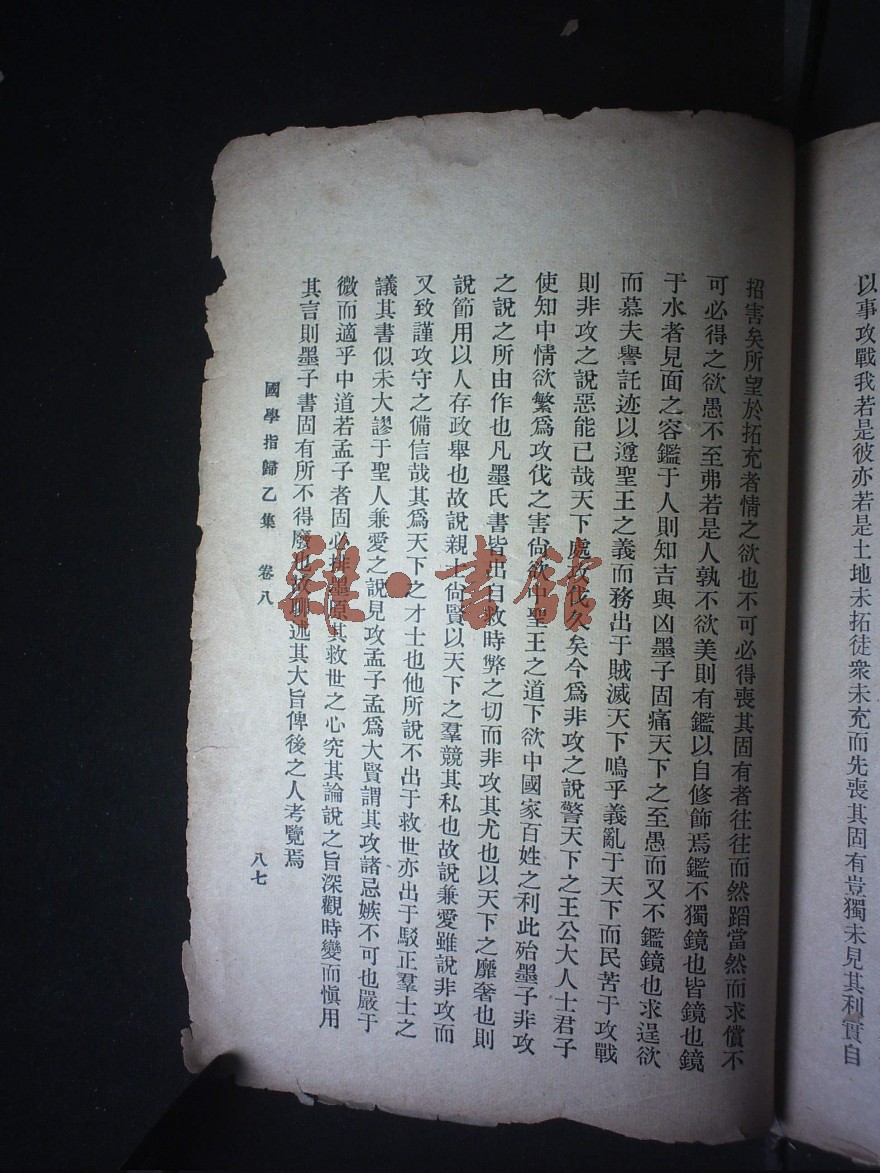 以事攻戰我若是彼亦若是土地未拓徒衆未充而先喪其固有豈獨未見其利實自
招害矣所望於拓充者情之欲也不可必得喪其固有者往往而然蹈當然而求償不
可必得之欲愚不至弗若是人孰不欲美則有鑑以自修飾焉鑑不獨鏡也皆鏡也鏡
于水者見面之容鑑于人則知吉與凶墨子固痛天下之至愚而又不鑑鏡也求逞欲
而慕夫譽託迹以遵聖王之義而務出于賊滅天下嗚乎義亂于天下而民苦于攻戰
則非攻之說惡能已哉天下處攻伐久矣今爲非攻之說警天下之王公大人士君子
使知中情欲繁爲攻伐之害尙欲中聖王之道下欲中國家百姓之利此殆墨子非攻
之說之所由作也凡墨氏書皆出自救時弊之切而非攻其尤也以天下之靡奢也則
說節用以人存政舉也故說親士尙賢以天下之羣競其私也故說兼愛雖說非攻而
又致謹攻守之備信哉其爲天下之才士也他所說不出于救世亦出于駁正羣士之
議其書似未大謬于聖人兼愛之說見攻孟子孟爲大賢謂其攻諸忌嫉不可也嚴于
微而適乎中道若孟子者固必排墨原其救世之心究其論說之旨深觀時變而愼用
其言則墨子書固有所不得廢也故聊述其大旨俾後之人考覽焉
國學指歸乙集 卷八
八七
雜·書館